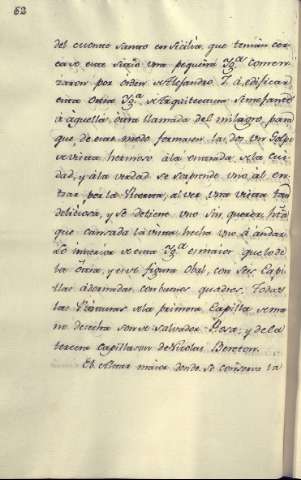 62
del monte Santo en Sicilia, que tenian cer-
ca de este sitio una pequeña Yg.ª comen-
zaron por orden de Alejandro 7. á edificar
esta otra Yg.ª de Arquitectura semejante
á aquella, otra llamada del milagro, para
que de este modo formasen las dos un Golpe
de vista hermoso á la entrada de la Ciu-
dad, y á la verdad se sorprende uno al en-
trar por la Puerta, al ver una vista tan
deliciosa, y se detiene uno sin querer, hta
que cansada la vista hecha uno á andar.
Lo interior de esta Yg.ª es maior que lo de
la otra, y es de figura Obal, con seis Capi-
llas adornadas con buenos quadros. Todas
las Pinturas de la primera Capilla de ma-
no derecha son de Salvador Rosa, y de la
tercera Capilla son de Nicolas Bereton.
El Altar maior donde se conserva la